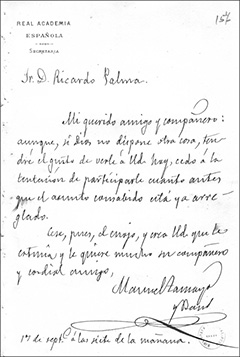 157
REAL ACADEMIA
ESPAÑOLA
SECRETARÍA
Sr. D. Ricardo Palma.
Mi querido amigo y compañero:
aunque, si Dios no dispone otra cosa, ten-
dré el gusto de verle á Ud. hoy, cedo á la
tentación de participarle cuanto antes
que el asunto consabido está ya arre-
glado.
Cese, pues, el enojo, y crea Ud. que le
estima y le quiere mucho su compañero
y cordial amigo,
Manuel Tamayo
y Baus
17 de sept.e á las siete de la mañana.